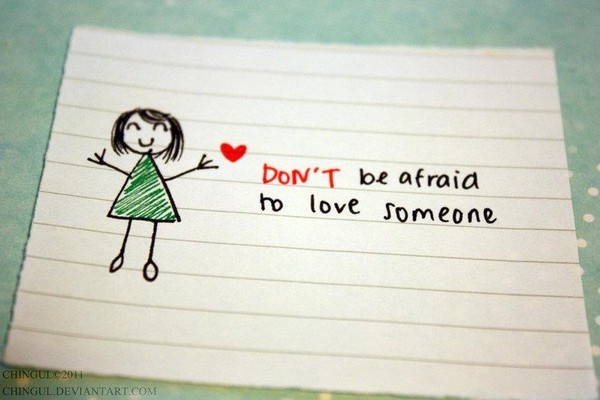 DON'T be afraid
to love someone
CHINGUL©2011
CHINGUL.DEVIANTART.COM